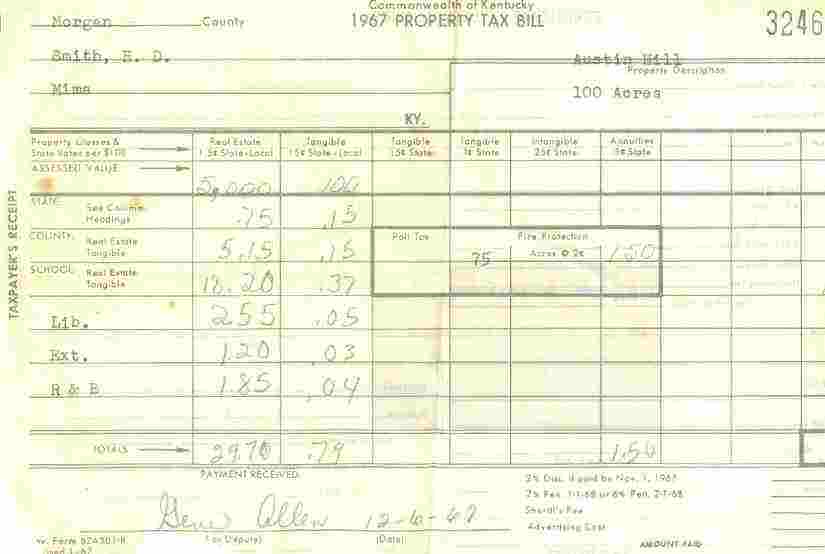 Commonwealth of Kentucky
Morgan County 1967 PROPERTY TAX BILL 3246
Smith, H. D. Austin Hill
Property Description
Mima 100 Acres
KY.
Property Classes & Real Estate Tangible Tangible Tangible Intangible Annuities
State Rates per $100 1.5¢ State-Local 15¢ State-Local 15¢ State 1¢ State 25¢ State 1¢ State
ASSESSED VALUE 5,000 100
STATE See Column Headings .75 .15
COUNTY Real Estate Tangible 5.15 .15 Poll Tax Fire Protection
75 Acres @ 2¢ 1.50
SCHOOL Real Estate Tangible 18.20 .37
Lib. 2.55 .05
Ext. 1.20 .03
R & B 1.85 .04
TOTALS 29.70 .79 1.50
PAYMENT RECEIVED
2% Disc. if paid by Nov. 1, 1967
2% Pen. 1-1-68 or 6% Pen. 2-1-68
Gene Allen 12-6-67
Sheriff's Fee
(or Deputy) (Date)
Advertising Cost
AMOUNT PAID
TAXPAYER'S RECEIPT